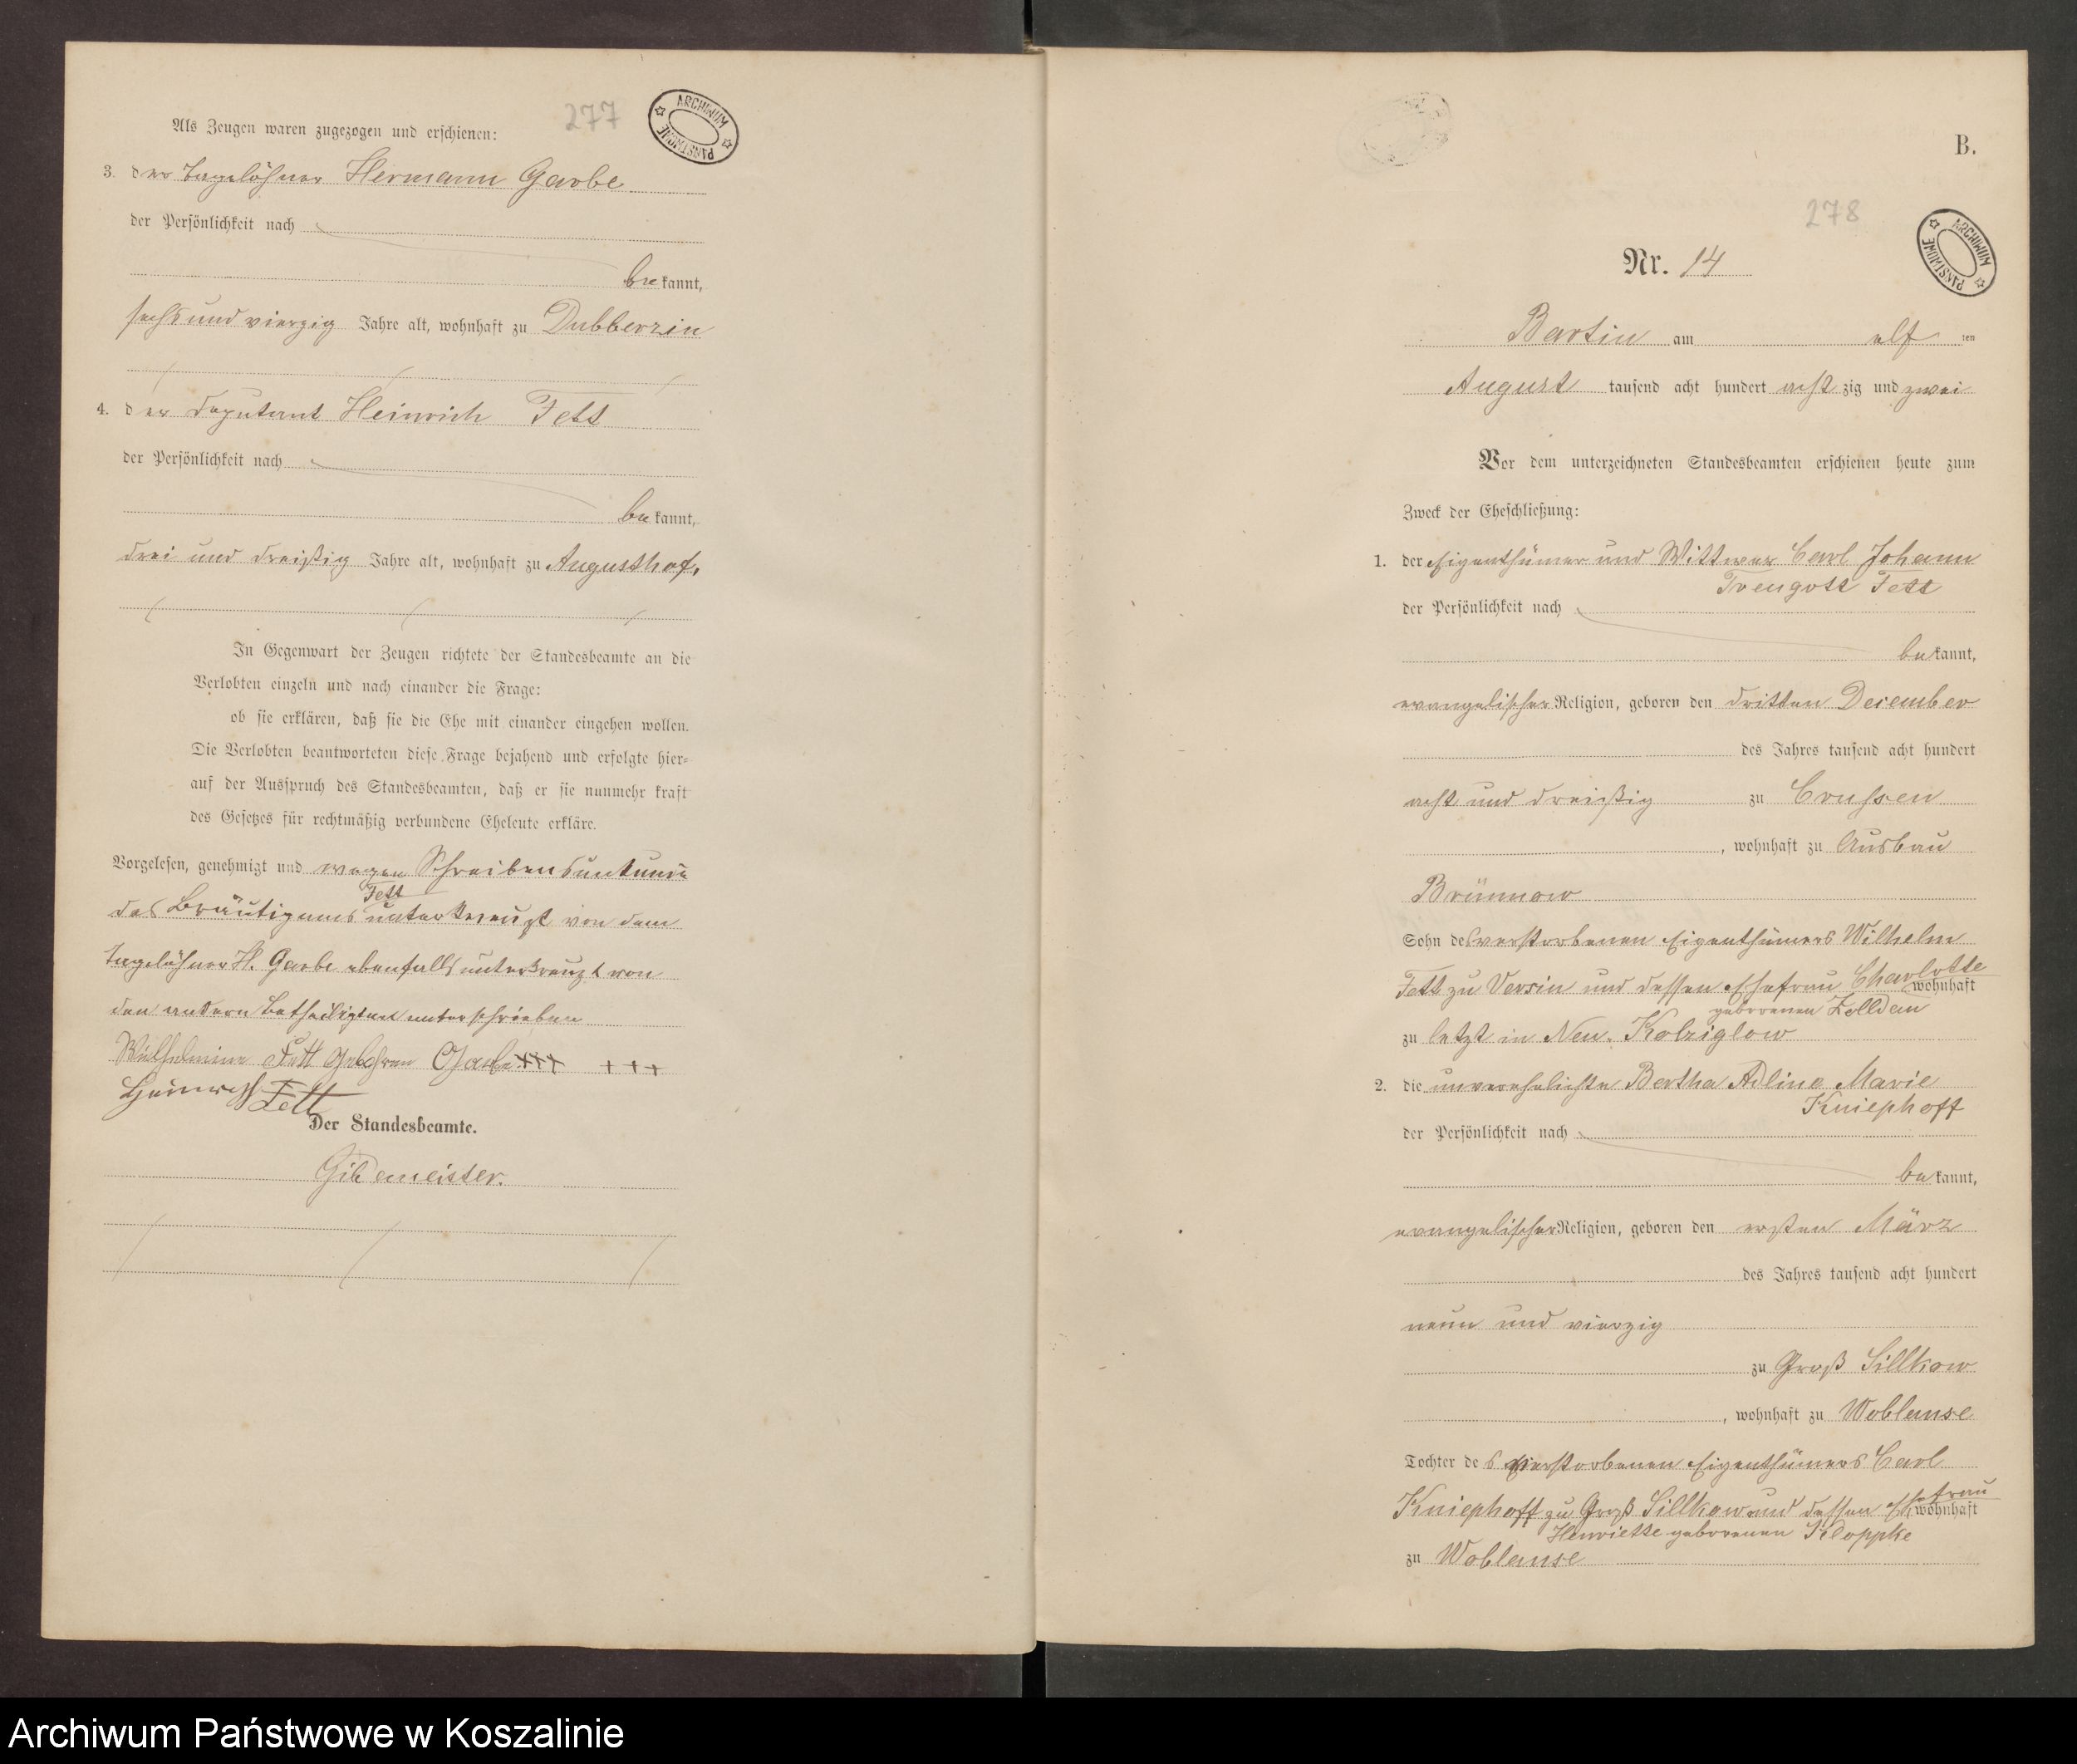 277
ARCHIWUM PAŃSTWOWE
Als Zeugen waren zugezogen und erschienen:
3. der Tagelöhner Hermann Garbe
der Persönlichkeit nach
bekannt,
sechs und vierzig Jahre alt, wohnhaft zu Dubberzin
4. der Deputant Heinrich Fett
der Persönlichkeit nach
bekannt,
drei und dreißig Jahre alt, wohnhaft zu Augusthof,
In Gegenwart der Zeugen richtete der Standesbeamte an die
Verlobten einzeln und nach einander die Frage:
ob sie erklären, daß sie die Ehe mit einander eingehen wollen.
Die Verlobten beantworteten diese Frage bejahend und erfolgte hier-
auf der Ausspruch des Standesbeamten, daß er sie nunmehr kraft
des Gesetzes für rechtmäßig verbundene Eheleute erkläre.
Vorgelesen, genehmigt und wegen Schreibensunkunde
Fett
des Bräutigams unterkreuzt von dem
Tagelöhner H. Garbe ebenfalls unterkreuzt von
den andern Betheiligten unterschrieben
Wilhelmine Fett geboren Garbe +++ +++
Heinrich Fett
Der Standesbeamte.
Gildemeister.
B.
278
ARCHIWUM PAŃSTWOWE
Nr. 14
Bartin am elf ten
August tausend acht hundert acht zig und zwei
Vor dem unterzeichneten Standesbeamten erschienen heute zum
Zweck der Eheschließung:
1. der Eigenthümer und Wittwer Carl Johann
Treugott Fett
der Persönlichkeit nach
bekannt,
evangelischer Religion, geboren den dritten December
des Jahres tausend acht hundert
acht und dreißig zu Crussen
, wohnhaft zu Ausbau
Brünnow
Sohn des verstorbenen Eigenthümers Wilhelm
Fett zu Versin und dessen Ehefrau Charlotte
wohnhaft
geborenen Zolldan
zu letzt in Neu. Kolziglow
2. die unverehelichte Bertha Adline Marie
Kniephoff
der Persönlichkeit nach
bekannt,
evangelischer Religion, geboren den ersten März
des Jahres tausend acht hundert
neun und vierzig
zu Groß Sillkow
, wohnhaft zu Woblanse
Tochter des verstorbenen Eigenthümers Carl
Kniephoff zu Groß Sillkow und dessen Ehefrau
wohnhaft
Henriette geborenen Kloppke
zu Woblanse
Archiwum Państwowe w Koszalinie